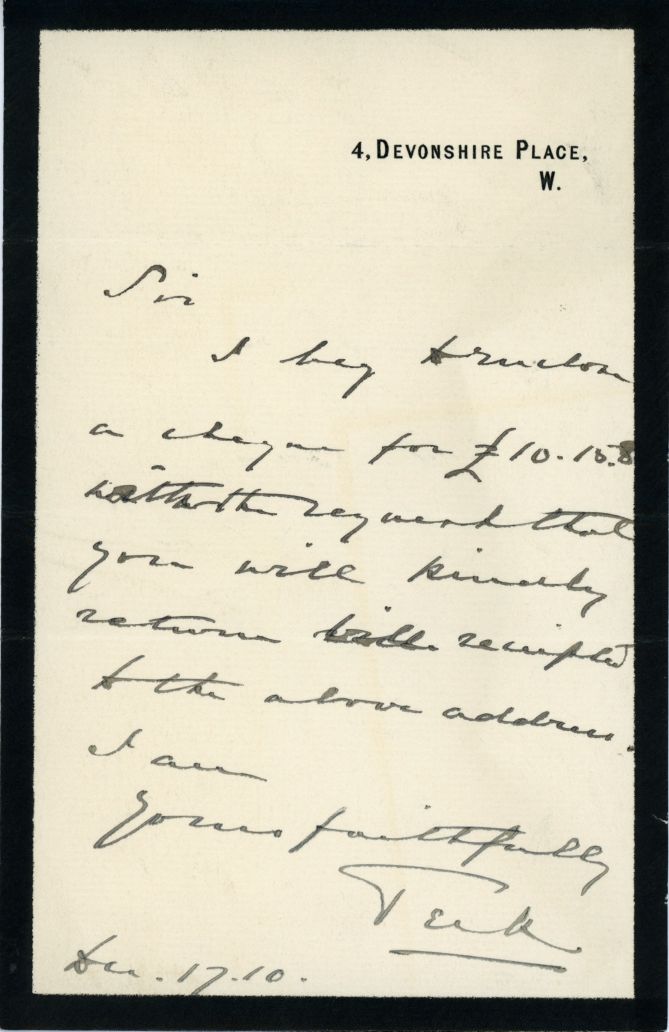 4, DEVONSHIRE PLACE,
W.
Sir
I beg to enclose
a cheque for £10.15.8
with the request that
you will kindly
return bill receipted
to the above address.
I am
yours faithfully
Teck
Dec. 17.10.